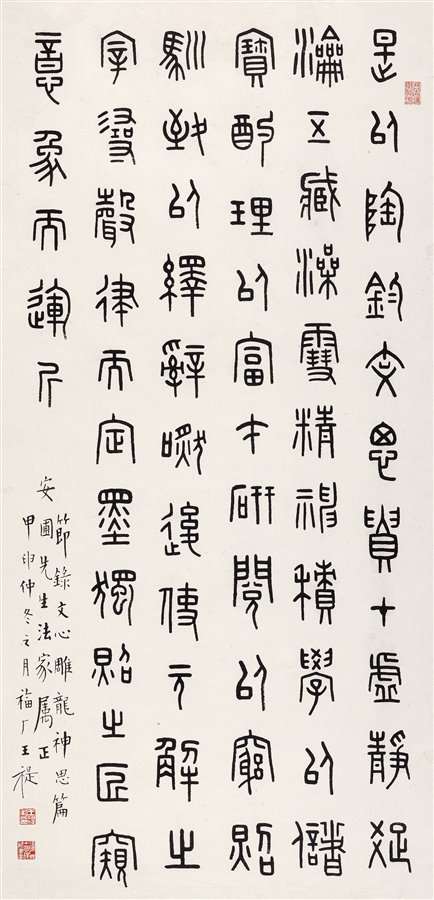 是以陶鈞文思貴在虛靜疏
瀹五臧澡雪精神積學以儲
寶酌理以富才研閱以窮照
馴致以繹辭然後使玄解之
宰尋聲律而定墨獨照之匠窺
意象而運斤
節錄文心雕龍神思篇
安圃先生法家属正
甲申仲冬之月福厂王禔